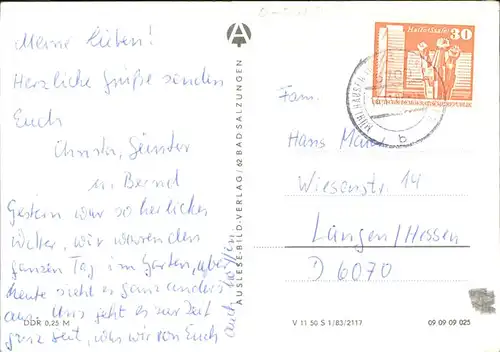 Meine Lieben!
Herzliche Grüße senden
Euch
Christa, Günter
u. Bernd
Gestern war so herliches
Wetter, wir waren den
ganzen Tag im Garten, aber
heute sieht es ganz anders
aus. Uns geht es zur Zeit
ganz gut, was wir von Euch
auch hoffen
DDR 0,25 M
AUSLESE-BILD-VERLAG/62 BAD SALZUNGEN
A
Halle-Saale 30
DEUTSCHE DEMOKRATISCHE REPUBLIK
MÜHLHAUSEN
b
Fam.
Hans
Wiesenstr. 14
Langen/Hessen
D 6070
V 11 50 S 1/83/2117
09 09 09 025